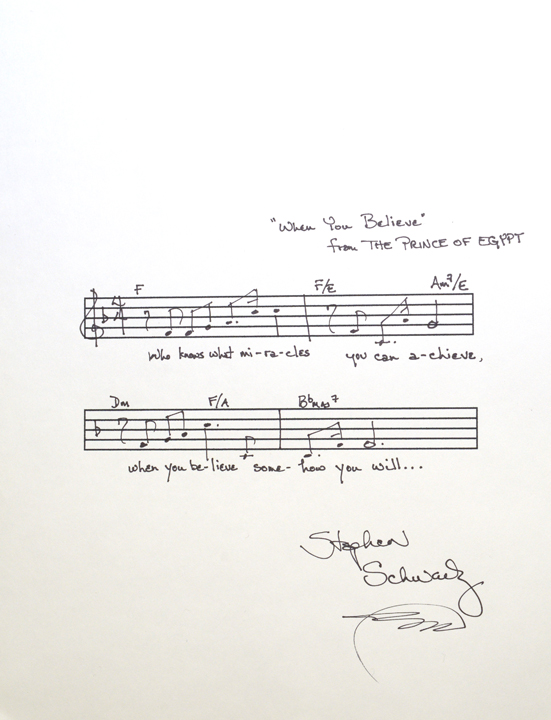 "When You Believe"
from THE PRINCE OF EGYPT
F F/E Am7/E
4
4
Who knows what mi-ra-cles you can a-chieve,
Dm F/A Bbmaj7
when you be-lieve some-how you will...
Stephen
Schwartz